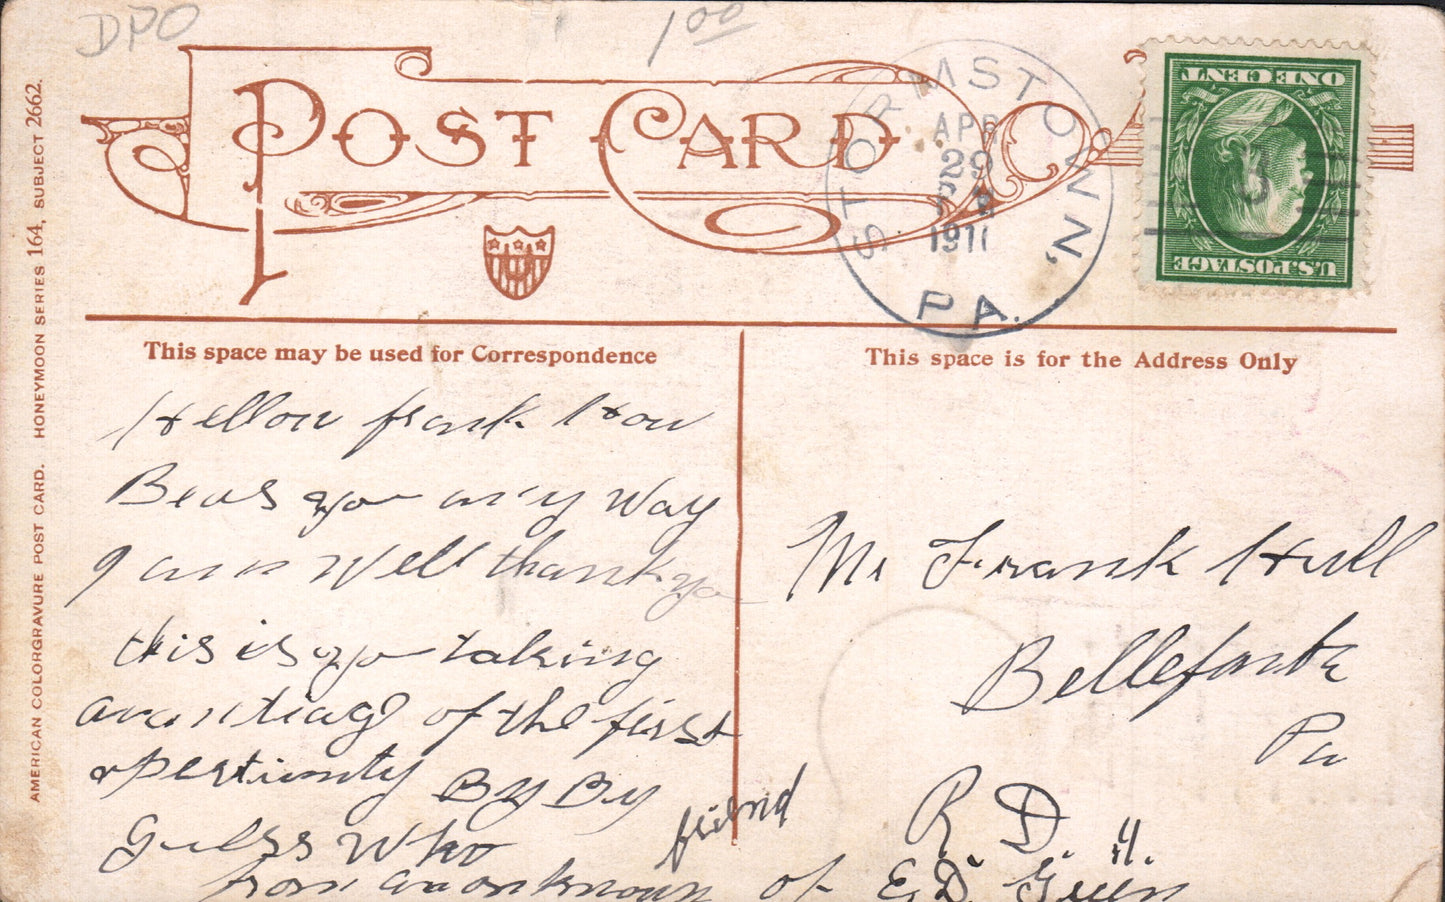 DPO
1 00
POST CARD
STORMSTOWN, PA.
APR
29
1911
3
ONE CENT
U.S. POSTAGE
AMERICAN COLORGRAVURE POST CARD. HONEYMOON SERIES 164, SUBJECT 2662.
This space may be used for Correspondence
Hellow frank How
Beas you any way
I am Well thank you
this is you taking
avantiage of the first
opertiunity By By
Guess Who
from an onknown friend of E.D. Green
This space is for the Address Only
Mr Frank Hull
Bellefonte
Pa
R. D. 4.